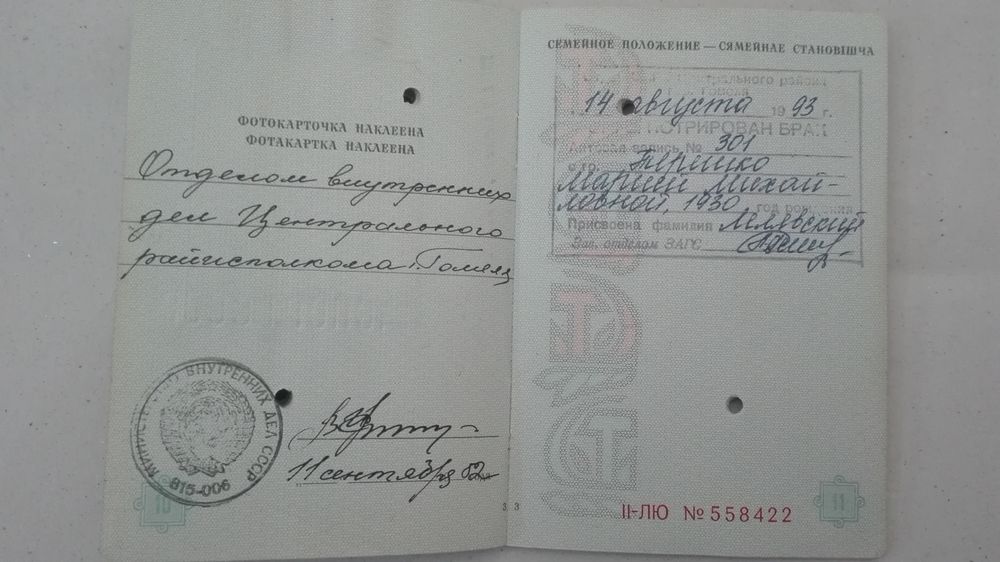 ФОТОКАРТОЧКА НАКЛЕЕНА
ФОТАКАРТКА НАКЛЕЕНА
Отделом внутренних
дел Центрального
райисполкома г. Гомеля
ВНУТРЕННИХ ДЕЛ СССР
815-006
11 сентября 82
10
СЕМЕЙНОЕ ПОЛОЖЕНИЕ — СЯМЕЙНАЕ СТАНОВІШЧА
Центрального района
14 августа 1993 г.
БРАК
запись № 301
с гр. Терешко
Марией Михай-
ловной, 1930 год рождения
Присвоена фамилия
Зав. отделом ЗАГС
II-ЛЮ № 558422
11